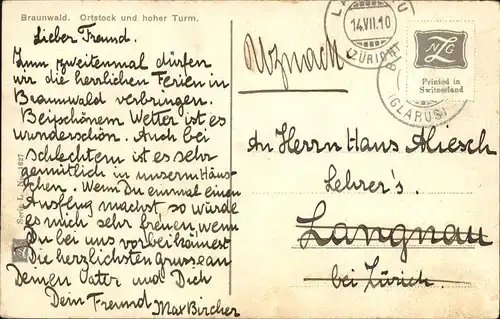 Braunwald. Ortstock und hoher Turm.
Lieber Freund.
Zum zweitenmal dürfen
wir die herrlichen Ferien in
Braunwald verbringen.
Bei schönem Wetter ist es
wunderschön. Auch bei
schlechtem ist es sehr
gemütlich in unserm Häus-
chen. Wenn Du einmal einen
Ausflug machst, so würde
es mich sehr freuen, wenn
Du bei uns vorbei kämest
Die herzlichsten grüsse an
Deinen Vater und Dich
Dein Freund Max Bircher
Serie L. No. 627
14.VII.10
(ZÜRICH)
(GLARUS)
NZG
Printed in
Switzerland
Uznach
An Herrn Hans Aliesch
Lehrer's.
Langnau
bei Zürich.